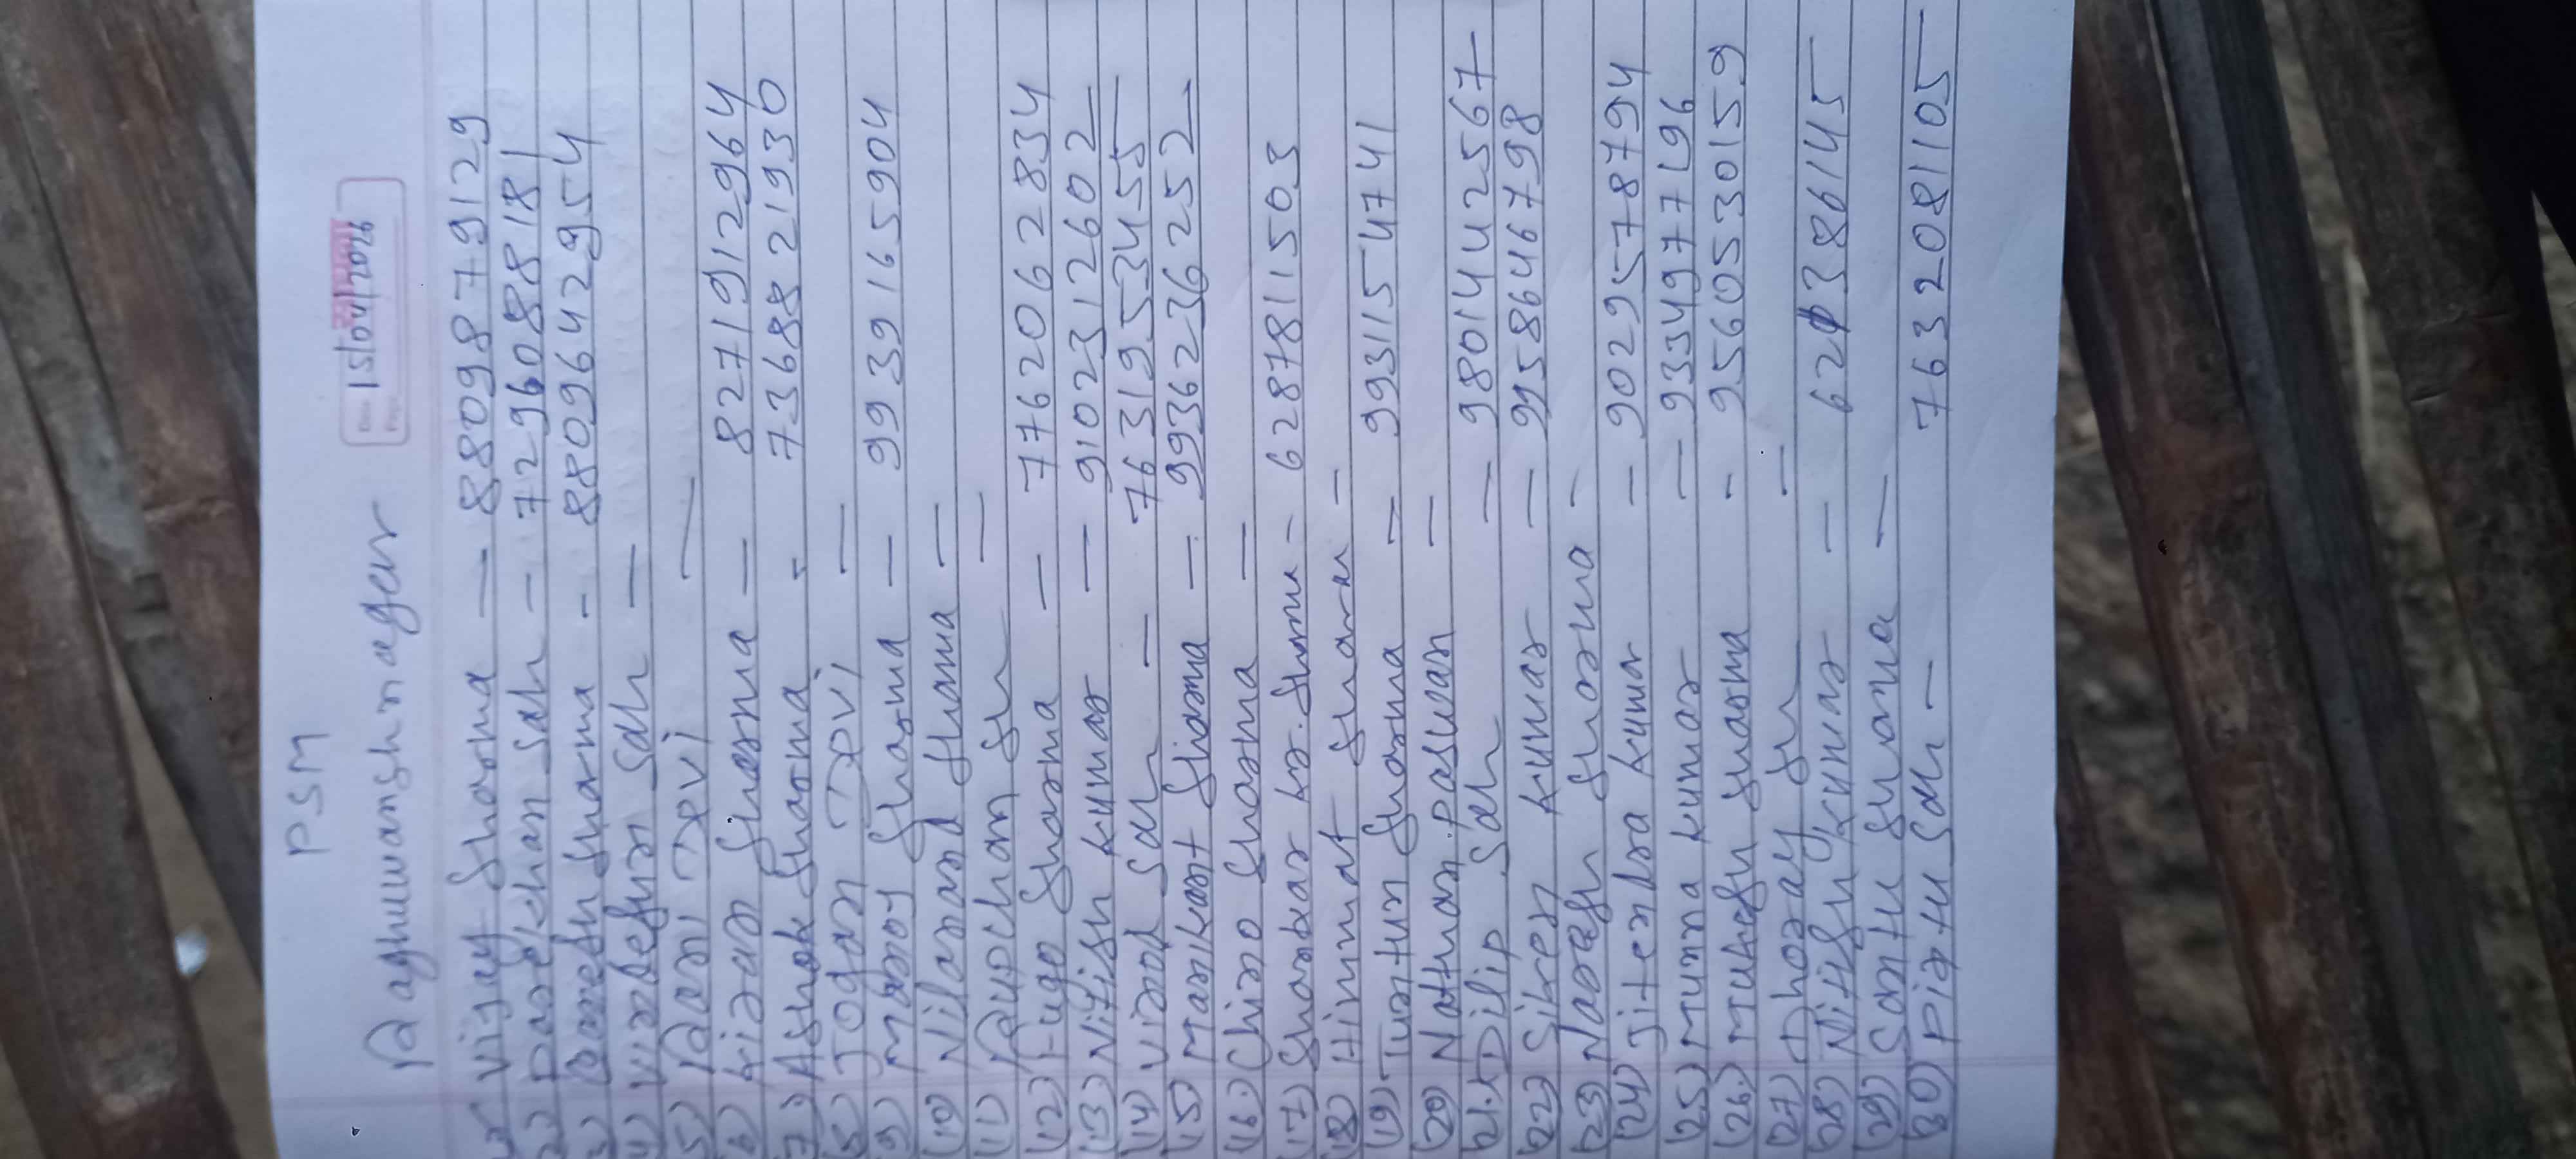 PSM
15/04/2026
Raghuwanshnager
Vijay Sharma — 8809879129
2) Parichan Sah — 7296088181
3) Sharma - 8809642954
4) Sah —
5) Rani Devi —
6) Kiran Sharma — 8271912964
7) Ashok Sharma - 7368821930
8) Jogan Devi —
9) Manoj Sharma — 9939165904
(10) Nilanand Sharma —
(11) —
(12) Sharma — 7762062834
(13) Nitish Kumar — 9102312602
(14) Vinod Sah — 7631953455
(15) Manikant Sharma — 9936236252
(16) Chino Sharma —
(17) Shankar Kr. Sharma - 6287811503
(18) Himmat Sharma —
(19) Tuntun Sharma — 9931154741
(20) Nathuan Paswan —
21) Dilip Sah — 9801442567
(22) Kumar — 9958646798
(23) Naresh Sharma —
(24) Jitendra Kumar — 9029578794
(25) Munna Kumar — 9334977196
(26) Mukesh Sharma - 9560530159
(27) —
(28) Nitish Kumar — 386145
(29) Santu Sharma —
(30) Pintu Sah — 7632081105